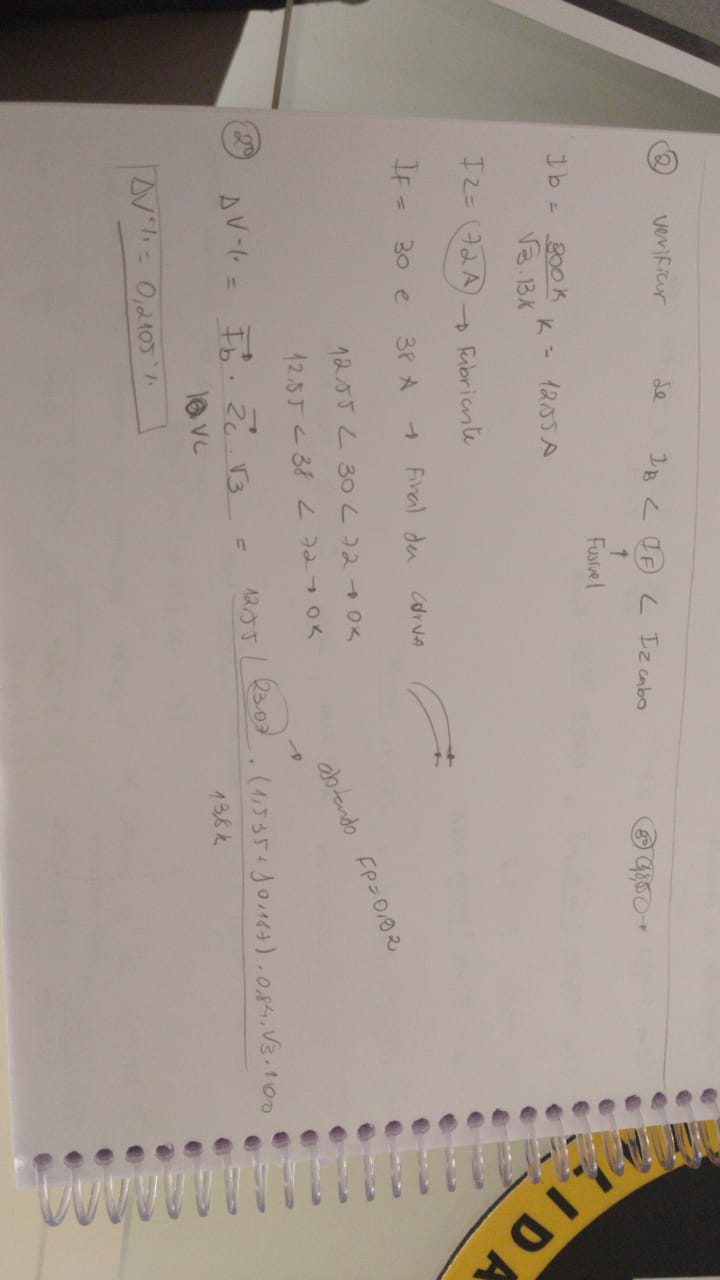 ② verificar se IB < IF < Iz cabo
↑
Fusível
Ib = 300K / √3.13K K = 12.55 A
Iz = 72A → Fabricante
IF = 30 e 38 A → Final da curva
12.55 < 30 < 72 → OK
12.55 < 38 < 72 → OK
adotando FP=0,92
2º ΔV% = Ib . Zc . √3 / VL = 12.55 ∠23.07 . (1,535 + j0,187) . 0,84 . √3 . 100 / 13,8k
ΔV% = 0,2105 %
LIDA